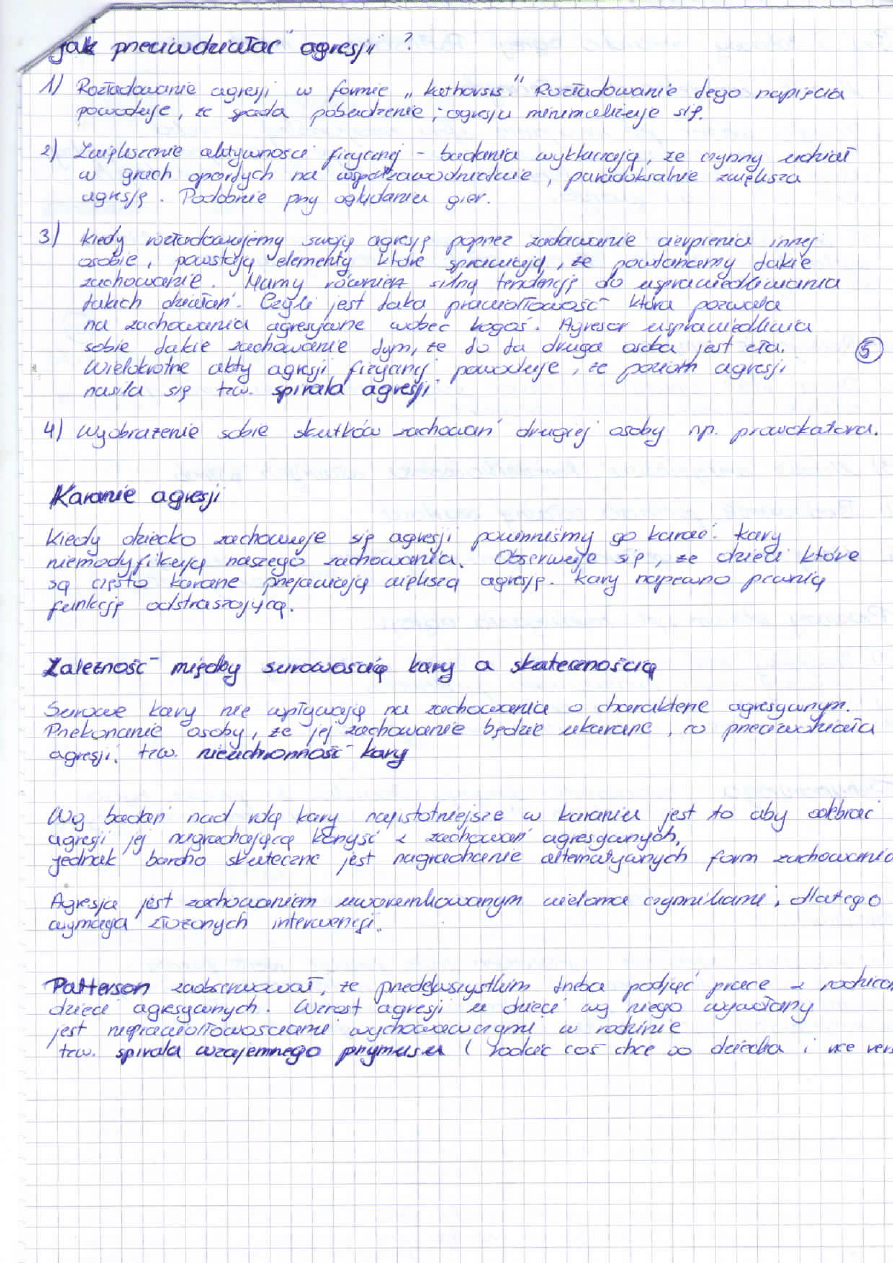 Jak przeciwdziałać agresji ?
1) Rozładowanie agresji w formie „kathorsis." Rozładowanie tego napięcia
powoduje, że spada pobudzenie i agresja minimalizuje się.
2) Zwiększenie aktywności fizycznej – badania wykluczają, że czynny udział
w grach opartych na współzawodnictwie, paradoksalnie zwiększa
agresję. Podobnie przy oglądaniu gier.
3) Kiedy rozładowujemy swoją agresję poprzez zadawanie cierpienia innej
osobie, powstają elementy które sprawiają, że powtarzamy takie
zachowanie. Mamy również silną tendencję do usprawiedliwiania
takich działań. Czyli jest taka prawidłowość która pozwala
na zachowania agresywne wobec kogoś. Agresor usprawiedliwia
sobie takie zachowanie tym, że to ta druga osoba jest zła.
Wielokrotne akty agresji fizycznej powoduje, że poziom agresji
nasila się tzw. spirala agresji
5
4) Wyobrażenie sobie skutków zachowań drugiej osoby np. prowokatora.
Karanie agresji
Kiedy dziecko zachowuje się agresji powinniśmy go karać. Kary
niemodyfikują naszego zachowania. Obserwuje się, że dzieci które
są często karane przejawiają większą agresję. Kary napewno pełnią
funkcję odstraszającą.
Zależność między surowością kary a skutecznością
Surowe kary nie wpływają na zachowania o charakterze agresywnym.
Przekonanie osoby, że jej zachowanie będzie ukarane, co przeciwdziała
agresji. tzw. nieuchronność kary
Wg badań nad rolą kary najistotniejsze w karaniu jest to aby odebrać
agresji jej nagradzającą korzyść z zachowań agresywnych,
jednak bardzo skuteczne jest nagradzanie alternatywnych form zachowania
Agresja jest zachowaniem uwarunkowanym wieloma czynnikami, dlatego
wymaga złożonych interwencji.
Patterson zaobserwował, że przedewszystkim trzeba podjąć pracę z rodzica
dzieci agresywnych. Wzrost agresji u dzieci wg niego wywołany
jest nieprawidłowościami wychowawczymi w rodzinie
tzw. spirala wzajemnego przymusu ( rodzic coś chce od dziecka i vice vers